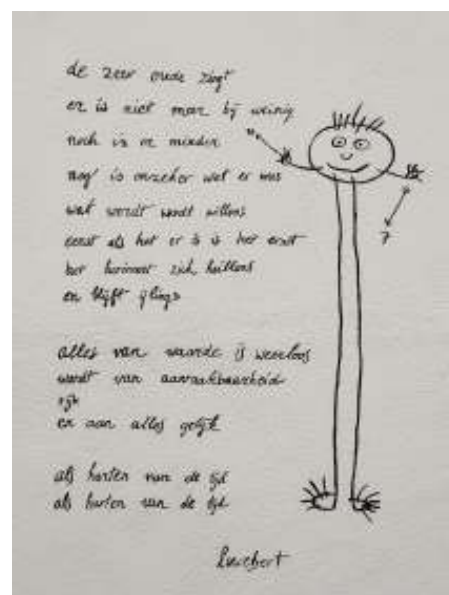 de zeer oude zingt
er is niet meer bij weinig
noch is er minder
nog is onzeker wat er was
wat wordt wordt willoos
eerst als het er is is het ernst
het herinnert zich heilloos
en blijft ijlings
alles van waarde is weerloos
wordt van aanraakbaarheid
rijk
en aan alles gelijk
als harten van de tijd
als harten van de tijd
lucebert